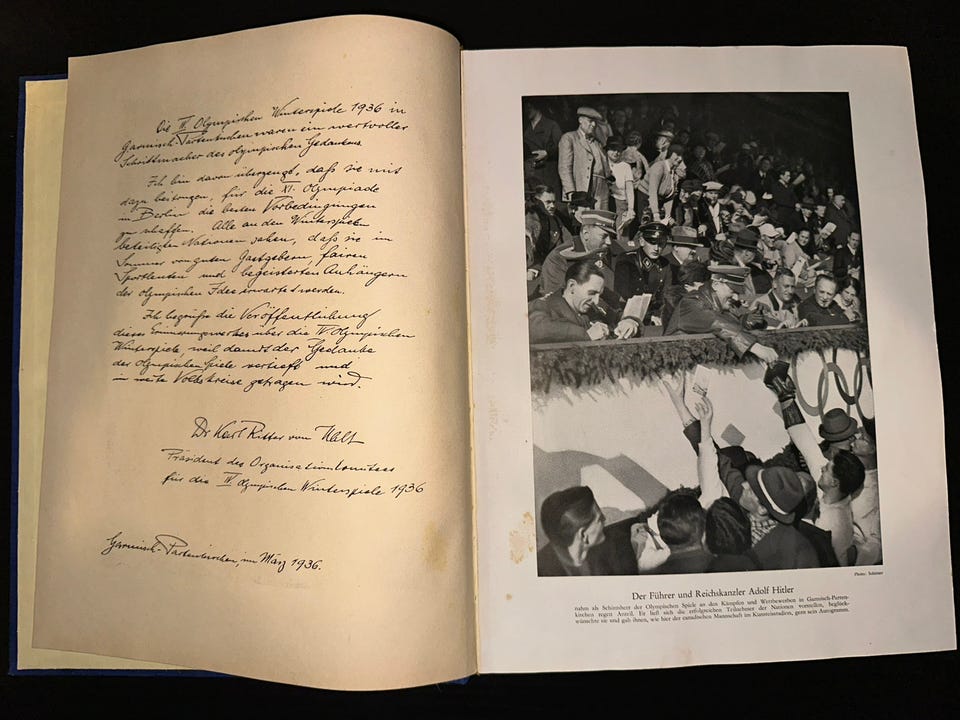 Die IV. Olympischen Winterspiele 1936 in
Garmisch-Partenkirchen waren ein wertvoller
Schrittmacher des olympischen Gedankens.
Ich bin davon überzeugt, daß sie mit
dazu beitrugen, für die XI. Olympiade
in Berlin die besten Vorbedingungen
zu schaffen. Alle an den Winterspielen
beteiligten Nationen sahen, daß sie im
Sommer von guten Gastgebern, fairen
Sportleuten und begeisterten Anhängern
der olympischen Idee erwartet werden.
Ich begrüße die Veröffentlichung
dieses Erinnerungswerkes über die IV. Olympischen
Winterspiele, weil damit der Gedanke
der olympischen Spiele vertieft und
in weite Volkskreise getragen wird.
Dr Karl Ritter von Halt
Präsident des Organisationskomitees
für die IV. olympischen Winterspiele 1936
Garmisch-Partenkirchen, im März 1936.
Photo: Schirner
Der Führer und Reichskanzler Adolf Hitler
nahm als Schirmherr der Olympischen Spiele an den Kämpfen und Wettbewerben in Garmisch-Parten-
kirchen regen Anteil. Er ließ sich die erfolgreichen Teilnehmer der Nationen vorstellen, beglück-
wünschte sie und gab ihnen, wie hier der canadischen Mannschaft im Kunsteisstadion, gern sein Autogramm.